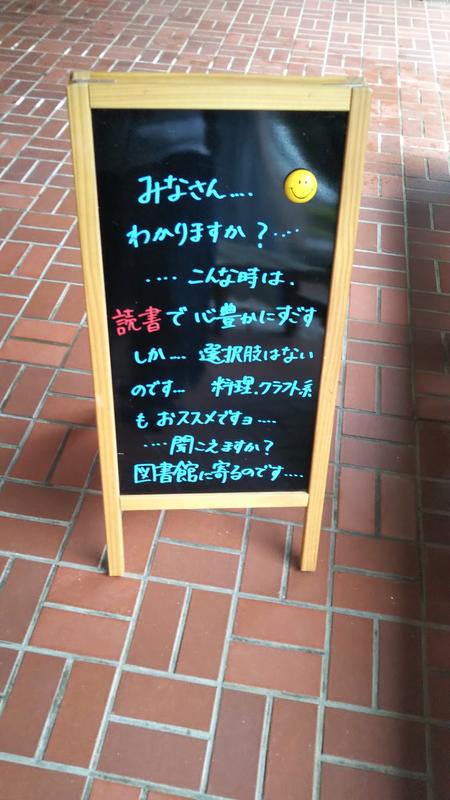 みなさん....
わかりますか？....
....こんな時は.
読書で 心豊かにすごす
しか.... 選択肢はない
のです... 料理.クラフト系
も おススメですョ....
....聞こえますか？
図書館に寄るのです....